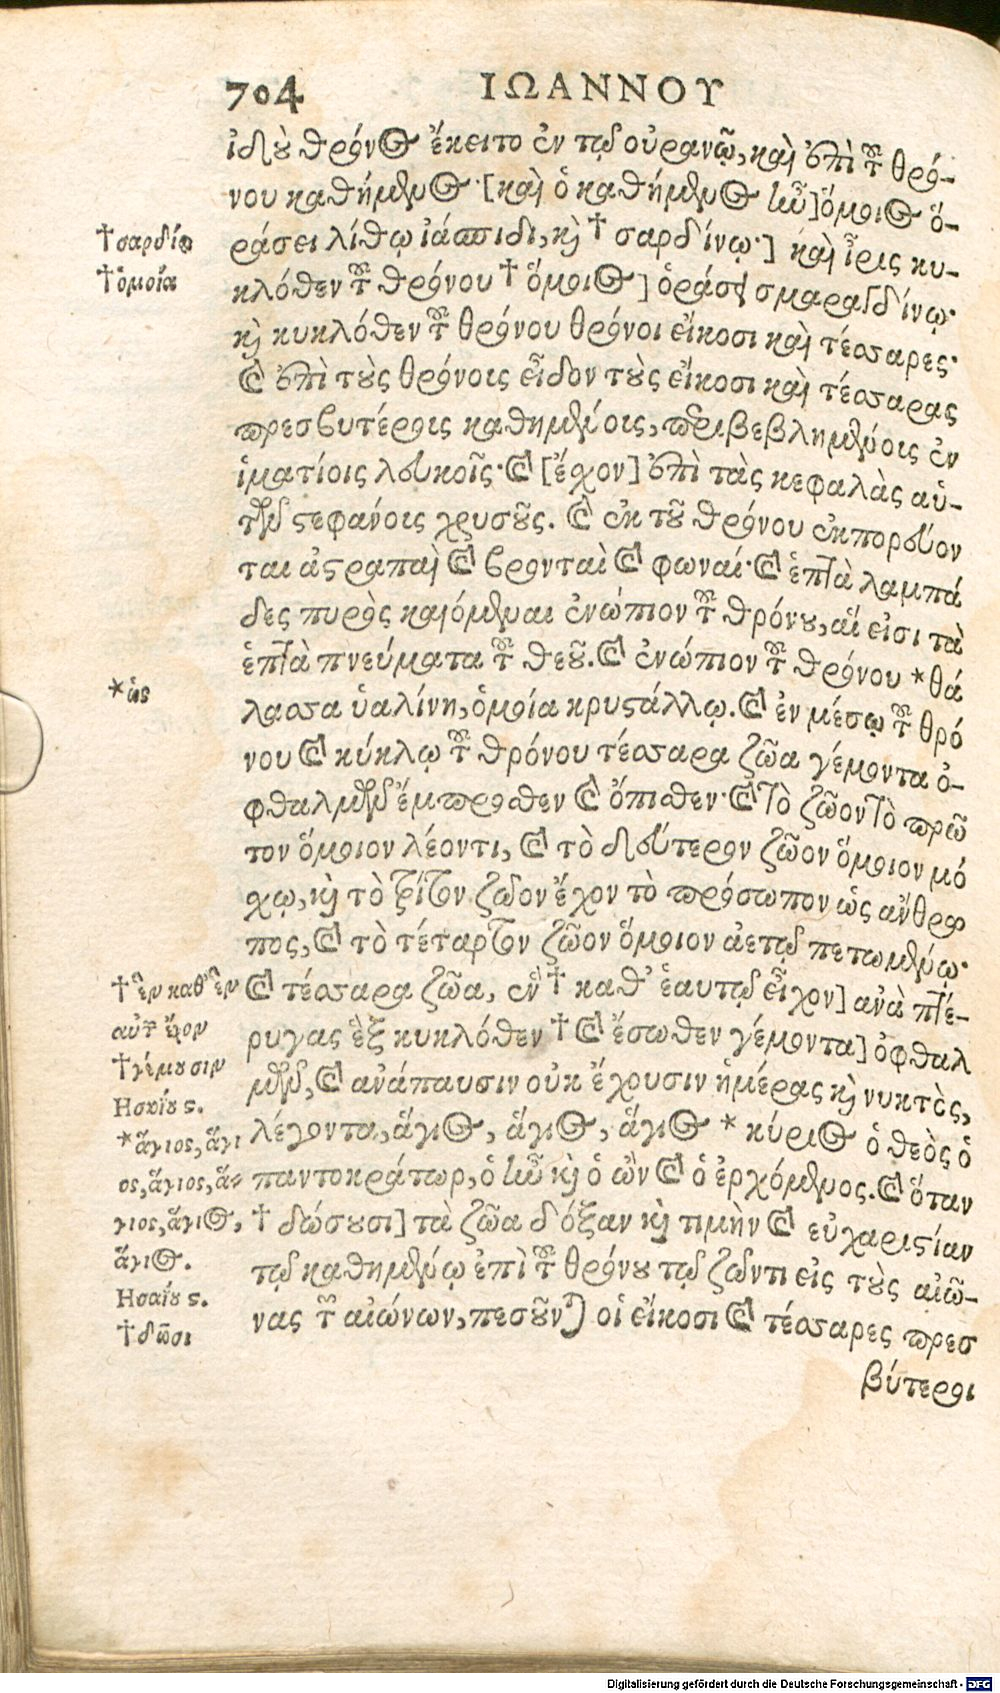 704 ΙΩΑΝΝΟΥ
ἰδοὺ θρόνος ἔκειτο ἐν τῷ οὐρανῷ, καὶ ἐπὶ τοῦ θρό-
νου καθήμενος· [καὶ ὁ καθήμενος ἦν] ὅμοιος ὁ-
ράσει λίθῳ ἰάσπιδι, καὶ † σαρδίνῳ·] καὶ ἶρις κυ-
κλόθεν τοῦ θρόνου † ὅμοιος] ὁράσει σμαραγδίνῳ·
καὶ κυκλόθεν τοῦ θρόνου θρόνοι εἴκοσι καὶ τέσσαρες·
καὶ ἐπὶ τοὺς θρόνοις εἶδον τοὺς εἴκοσι καὶ τέσσαρας
πρεσβυτέροις καθημένοις, περιβεβλημένοις ἐν
ἱματίοις λευκοῖς· καὶ [ἔχον] ἐπὶ τὰς κεφαλὰς αὐ-
τῶν στεφάνοις χρυσοῦς. καὶ ἐκ τοῦ θρόνου ἐκπορεύον
ται ἀστραπαὶ καὶ βρονταὶ καὶ φωναί· καὶ ἑπτὰ λαμπά
δες πυρὸς καιόμεναι ἐνώπιον τοῦ θρόνου, αἵ εἰσι τὰ
ἑπτὰ πνεύματα τοῦ θεοῦ. καὶ ἐνώπιον τοῦ θρόνου * θά
λασσα ὑαλίνη, ὁμοία κρυστάλλῳ. καὶ ἐν μέσῳ τοῦ θρό
νου καὶ κύκλῳ τοῦ θρόνου τέσσαρα ζῶα γέμοντα ὀ-
φθαλμῶν ἔμπροσθεν καὶ ὄπισθεν· καὶ τὸ ζῶον τὸ πρῶ
τον ὅμοιον λέοντι, καὶ τὸ δεύτερον ζῶον ὅμοιον μό
χῳ, καὶ τὸ τρίτον ζῶον ἔχον τὸ πρόσωπον ὡς ἄνθρω
πος, καὶ τὸ τέταρτον ζῶον ὅμοιον ἀετῷ πετωμένῳ·
καὶ τέσσαρα ζῶα, ἓν † καθ' ἑαυτῷ εἶχον] ἀνὰ πτέ-
ρυγας ἓξ κυκλόθεν † καὶ ἔσωθεν γέμοντα] ὀφθαλ
μῶν, καὶ ἀνάπαυσιν οὐκ ἔχουσιν ἡμέρας καὶ νυκτὸς,
λέγοντα, ἅγιος, ἅγιος, ἅγιος * κύριος ὁ θεὸς ὁ
παντοκράτωρ, ὁ ἦν καὶ ὁ ὢν καὶ ὁ ἐρχόμενος. καὶ ὅταν
† δώσουσι] τὰ ζῶα δόξαν καὶ τιμὴν καὶ εὐχαριστίαν
τῷ καθημένῳ ἐπὶ τοῦ θρόνου τῷ ζῶντι εἰς τοὺς αἰῶ-
νας τῶν αἰώνων, πεσοῦνται οἱ εἴκοσι καὶ τέσσαρες πρεσ
βύτεροι
† σαρδίῳ
† ὁμοία
* ὡς
† ἓν καθ' ἓν
αὐτῶν ἔχον
† γέμουσιν
Ησαΐου ς.
* ἅγιος, ἅγι
ος, ἅγιος, ἅ-
γιος, ἅγιος,
ἅγιος.
Ησαΐου ς.
† δῶσι
Digitalisierung gefördert durch die Deutsche Forschungsgemeinschaft - DFG